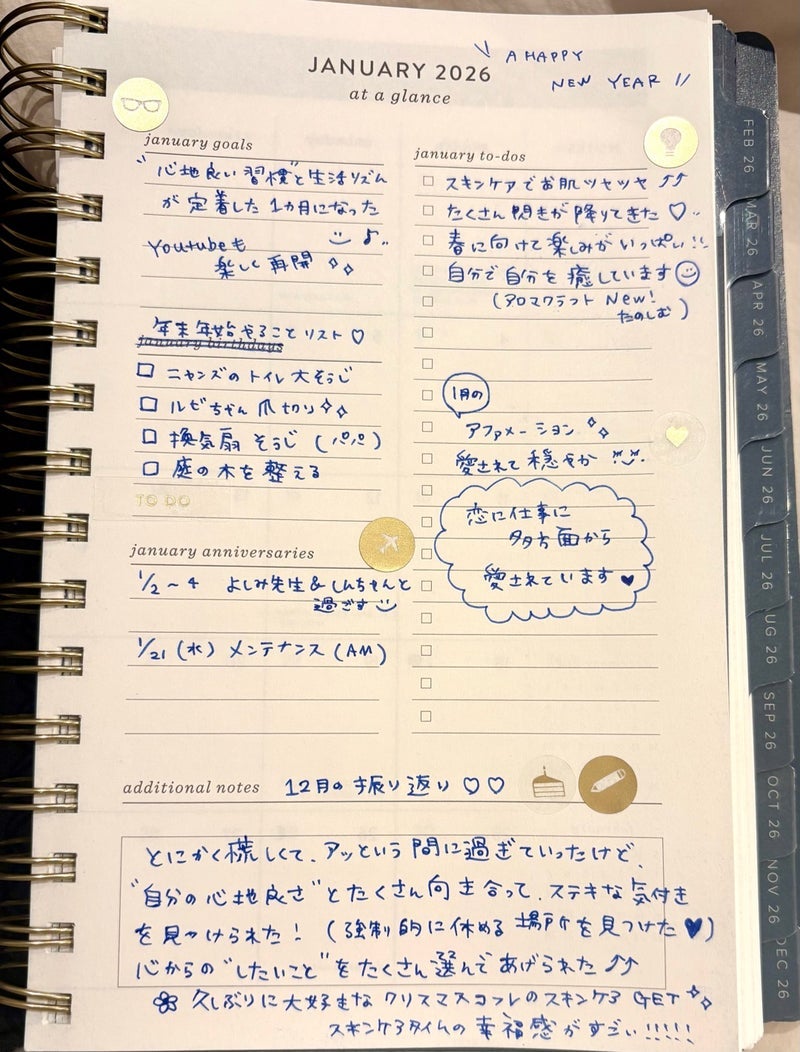 JANUARY 2026
at a glance
\\ A HAPPY
NEW YEAR //
january goals
"心地良い習慣"と生活リズム
が定着した1ヵ月になった
Youtubeも
楽しく再開
年末年始やることリスト♡
january birthdays
□ ニャンズのトイレ大そうじ
□ ルビちゃん爪切り
□ 換気扇そうじ (パパ)
□ 庭の木を整える
TO DO
january anniversaries
1/2〜4 よしみ先生&しんちゃんと
過ごす
1/21(水) メンテナンス(AM)
january to-dos
スキンケアでお肌ツヤツヤ♪♪
たくさん閃きが降りてきた♡..
春に向けて楽しみがいっぱい!!
自分で自分を癒しています☺
(アロマクラフト New!
たのしむ)
1月の
アファメーション
愛されて穏やか
恋に仕事に
多方面から
愛されています♥
additional notes 12月の振り返り♡♡
とにかく慌しくて、アッという間に過ぎていったけど、
"自分の心地良さ"とたくさん向き合って、ステキな気付き
を見つけられた! (強制的に休める場所を見つけた♥)
心からの"したいこと"をたくさん選んであげられた♪♪
久しぶりに大好きなクリスマスコフレのスキンケアGET
スキンケアタイムの幸福感がすごい!!!!!
FEB 26
MAR 26
APR 26
MAY 26
JUN 26
JUL 26
UG 26
SEP 26
OCT 26
NOV 26
DEC 26